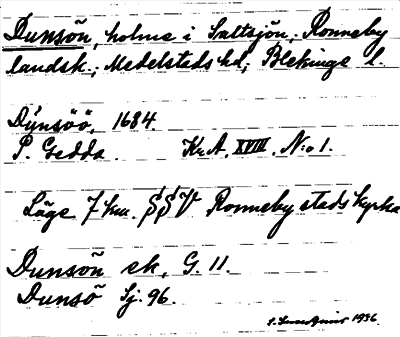 Dunsön, holme i Saltsjön, Ronneby
landsk., Medelstads hd, Blekinge l.
Dÿnsöö, 1684.
P. Gedda. Kr.A. XVIII. N:o 1.
Läge 7 km. SSV Ronneby stads kyrka
Dunsön ek, G. 11.
Dunsö Sj. 96.
1936.